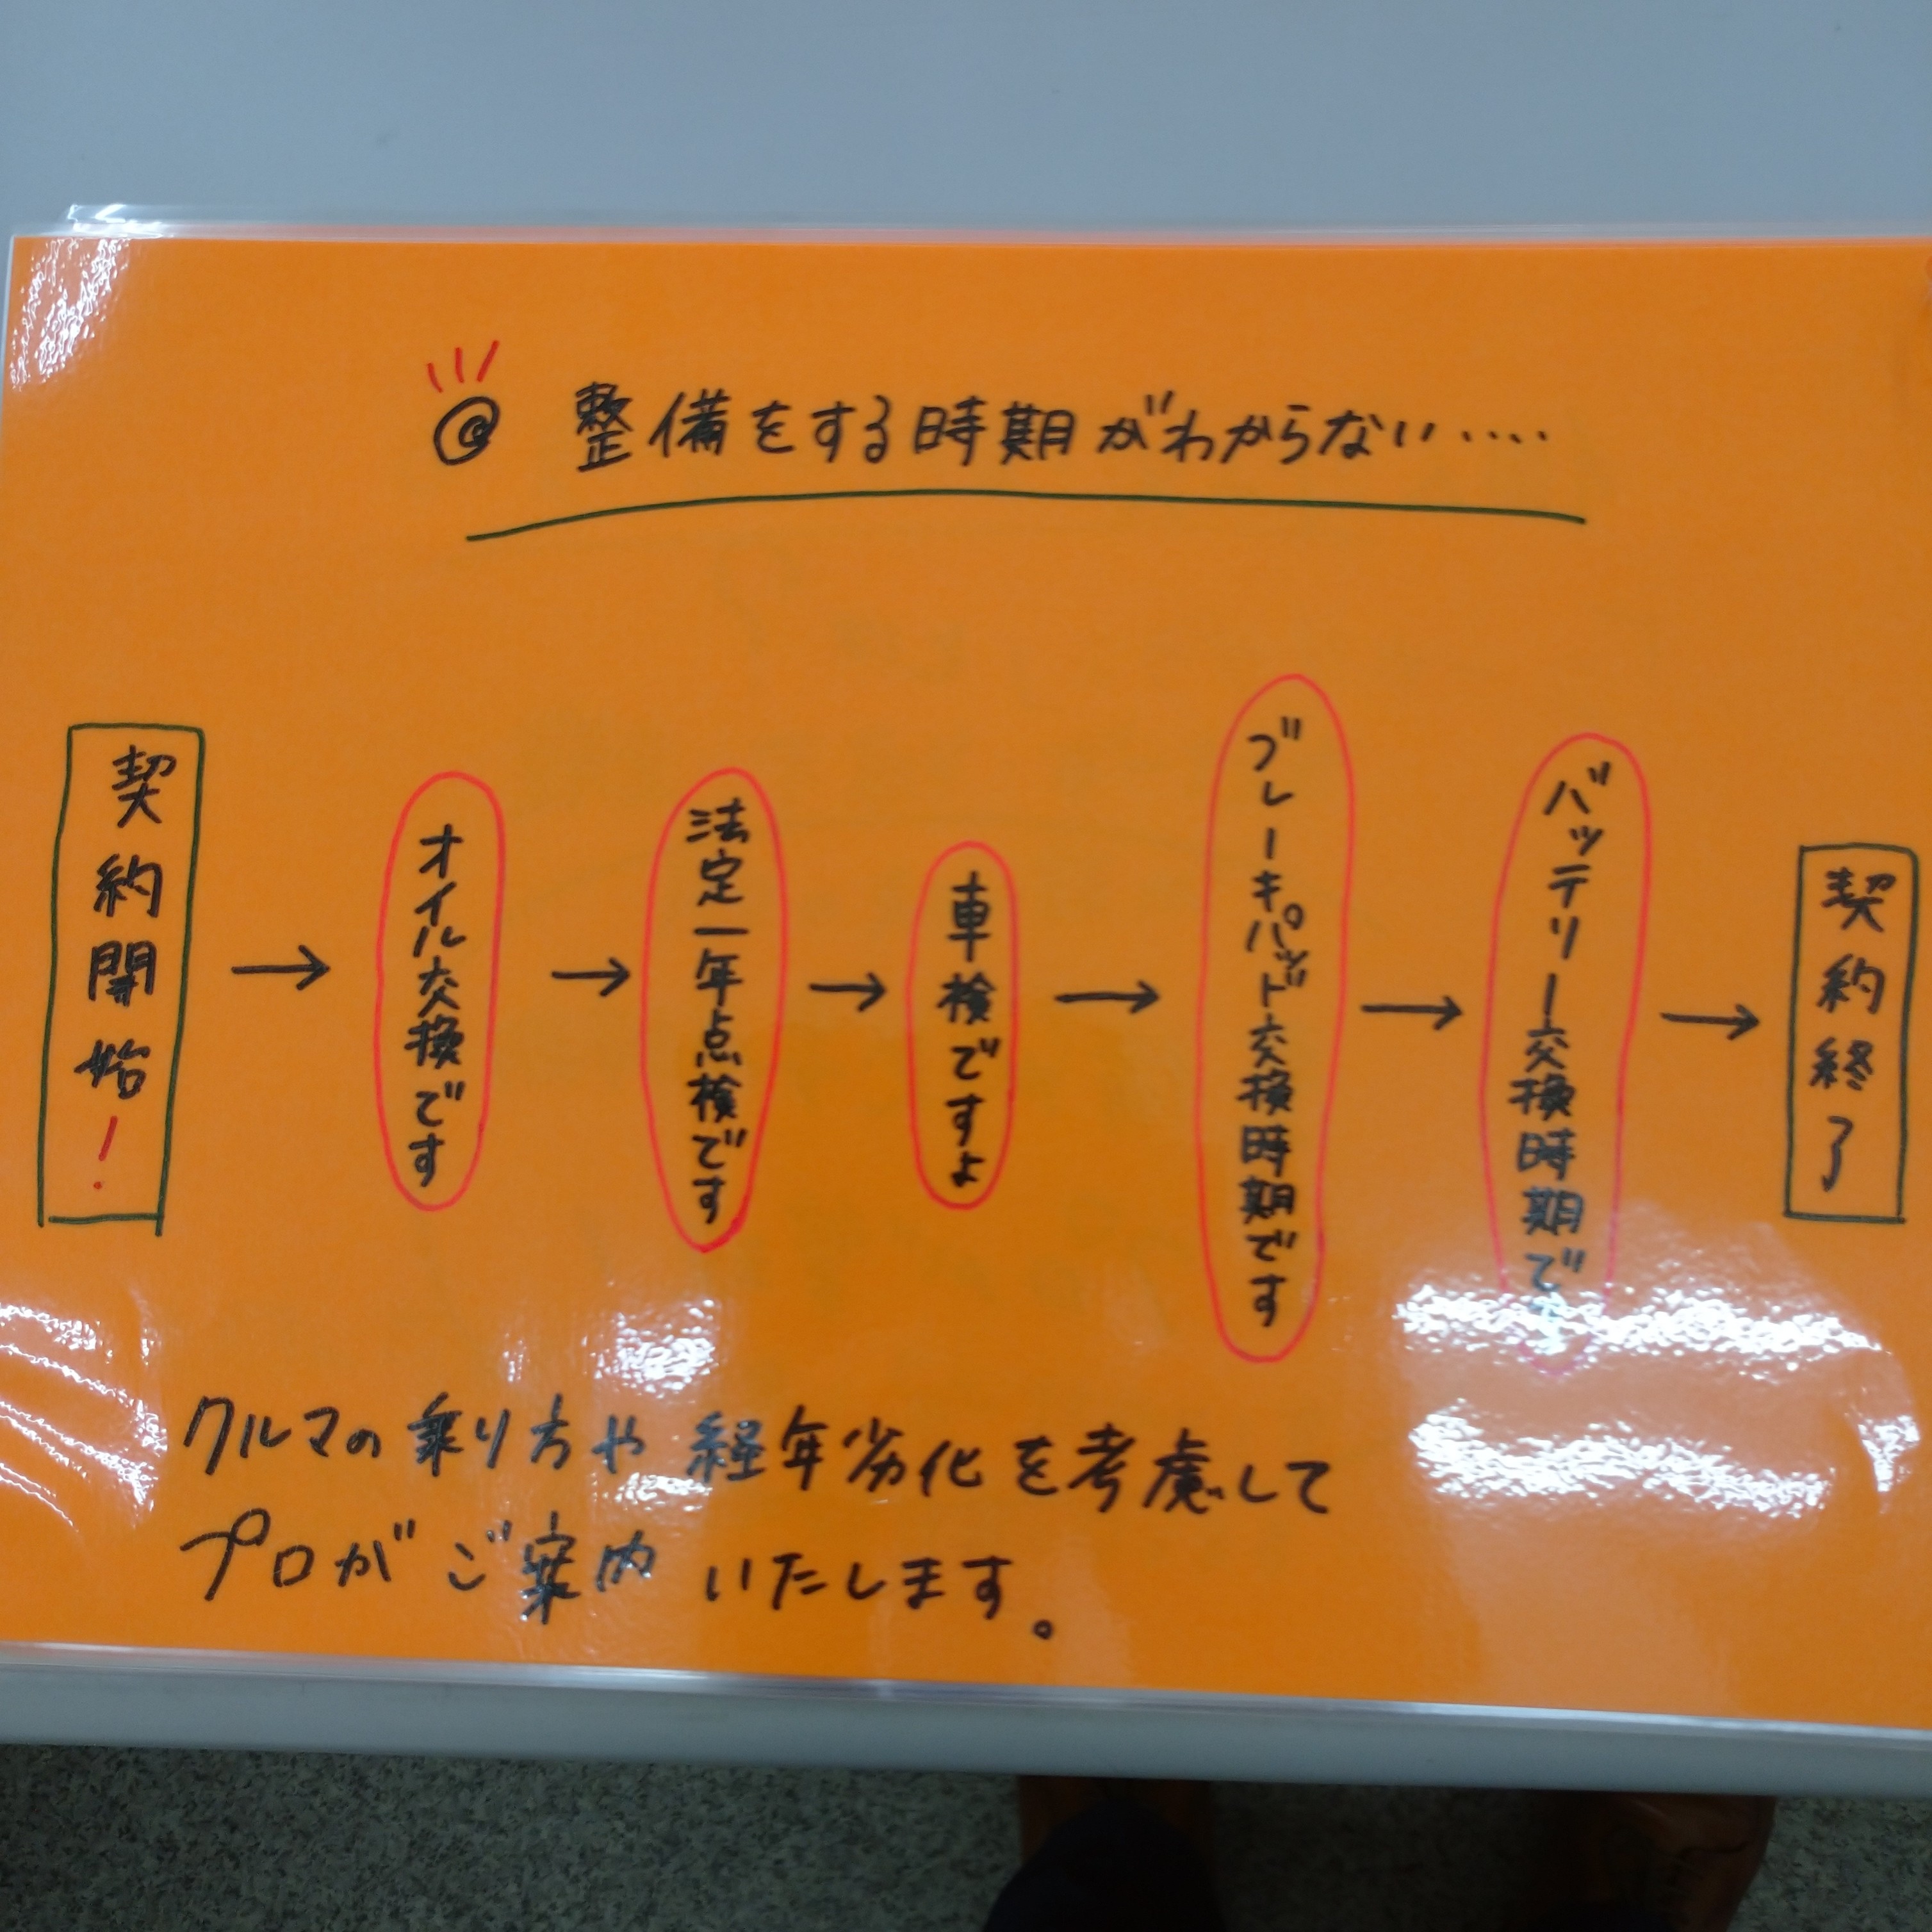 ◎ 整備をする時期がわからない‥‥
契約開始!
→
オイル交換です
→
法定一年点検です
→
車検ですよ
→
ブレーキパッド交換時期です
→
バッテリー交換時期です
→
契約終了
クルマの乗り方や経年劣化を考慮して
プロがご案内いたします。